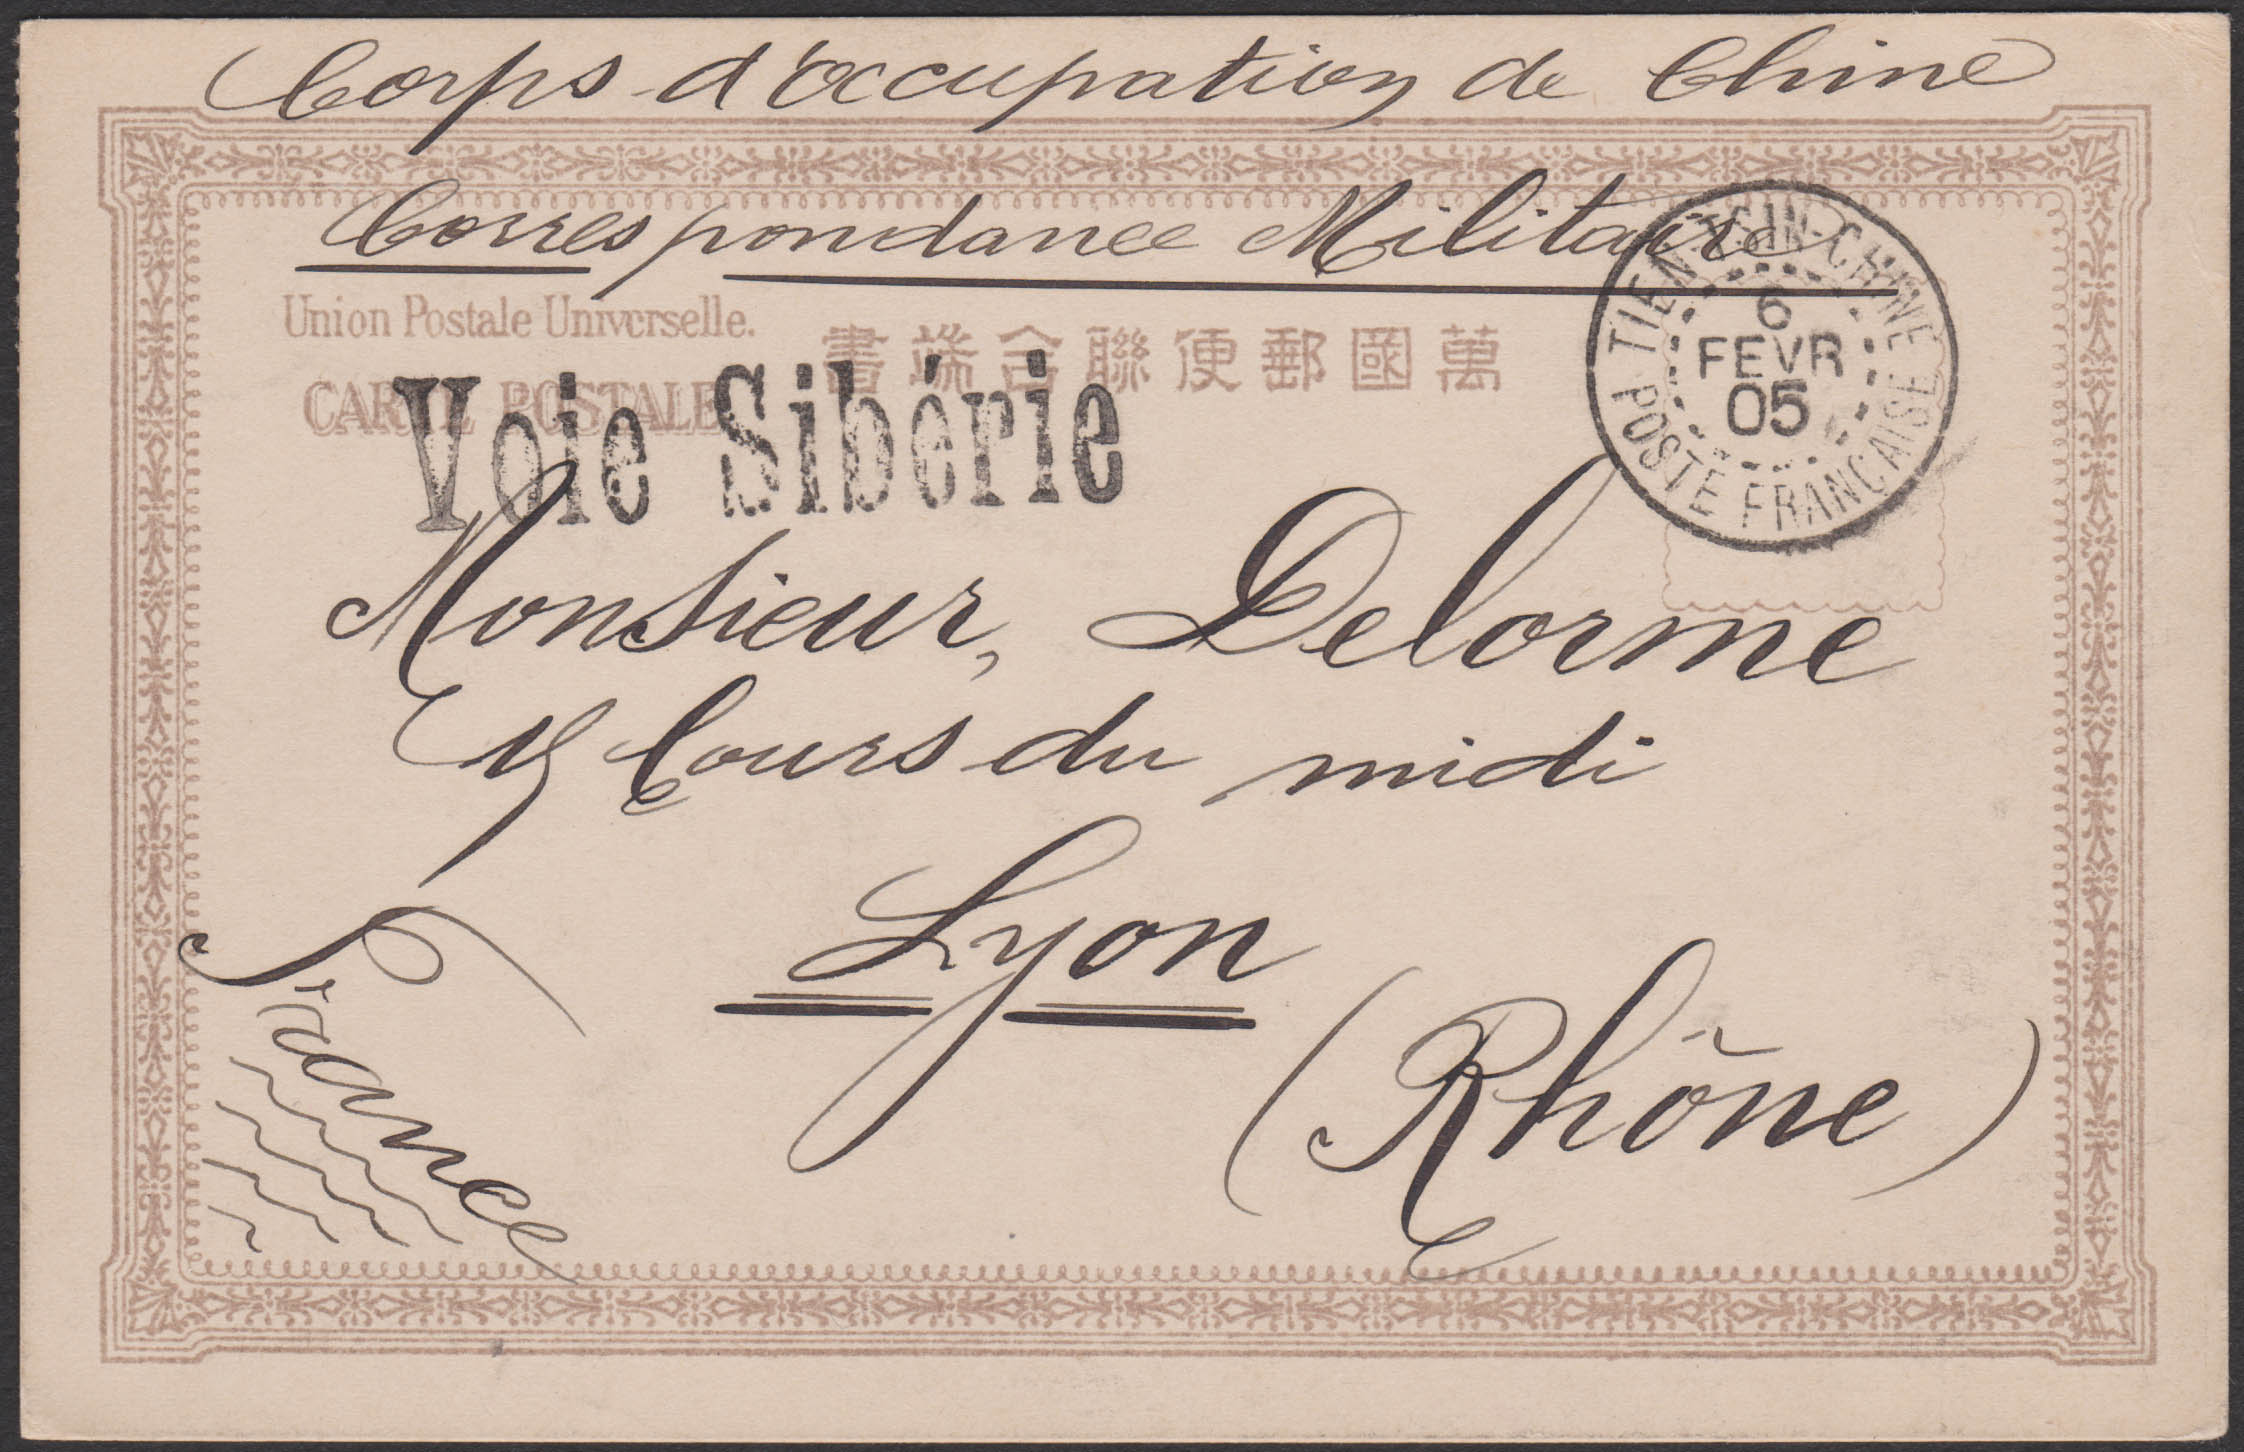 Corps d'occupation de Chine
Correspondance Militaire
Union Postale Universelle.
書端合聯便郵國萬
CARTE POSTALE
Voie Sibérie
TIEN-TSIN-CHINE
6
FEVR
05
POSTE FRANÇAISE
Monsieur, Delorme
Cours du midi
Lyon
(Rhône)
France